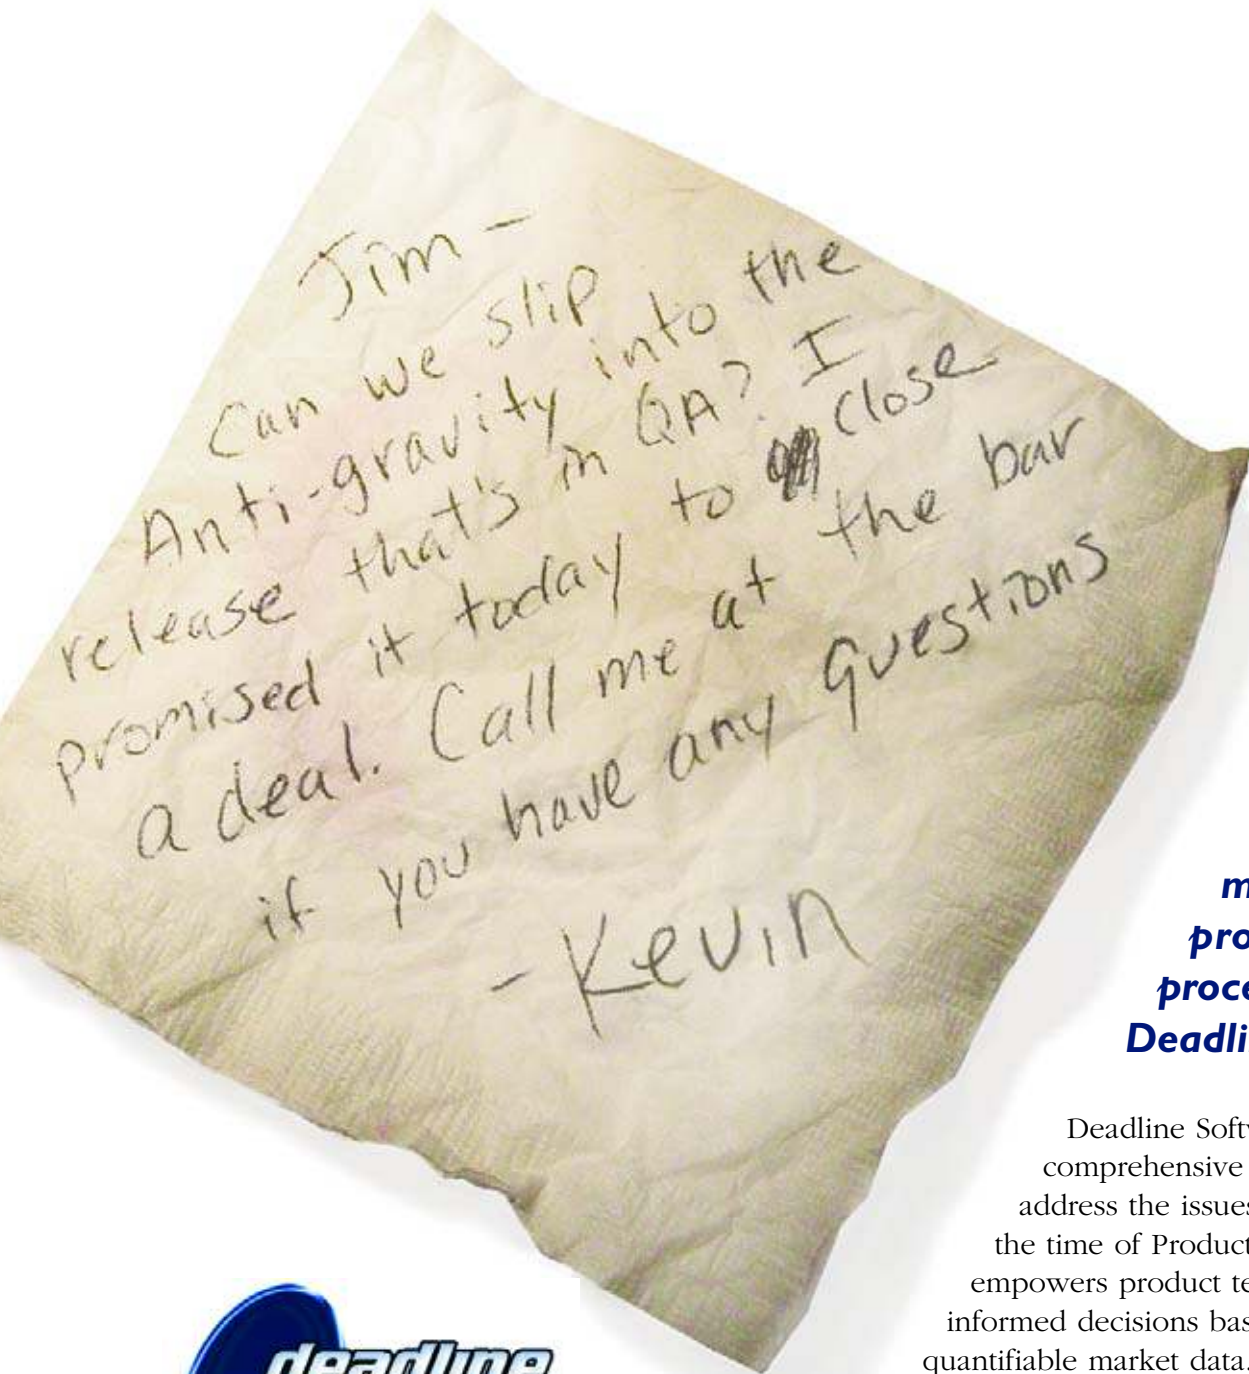 Jim -
Can we slip
Anti-gravity into the
release that's in QA? I
promised it today to close
a deal. Call me at the bar
if you have any questions
- Kevin
m
pro
proce
Deadli
Deadline Softw
comprehensive
address the issues
the time of Product
empowers product te
informed decisions bas
quantifiable market data.
deadline